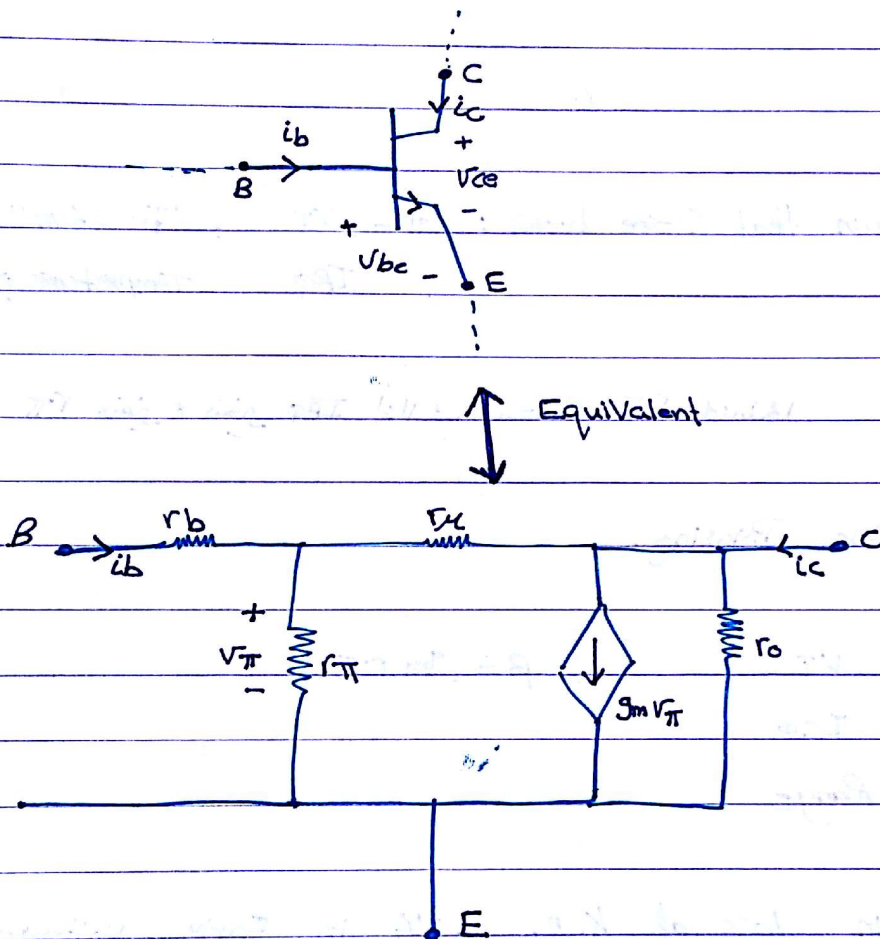 C
ic
+
ib
Vce
B
-
+
Vbe
-
E
Equivalent
B
rb
rμ
C
ib
ic
+
Vπ
rπ
-
gmVπ
ro
E